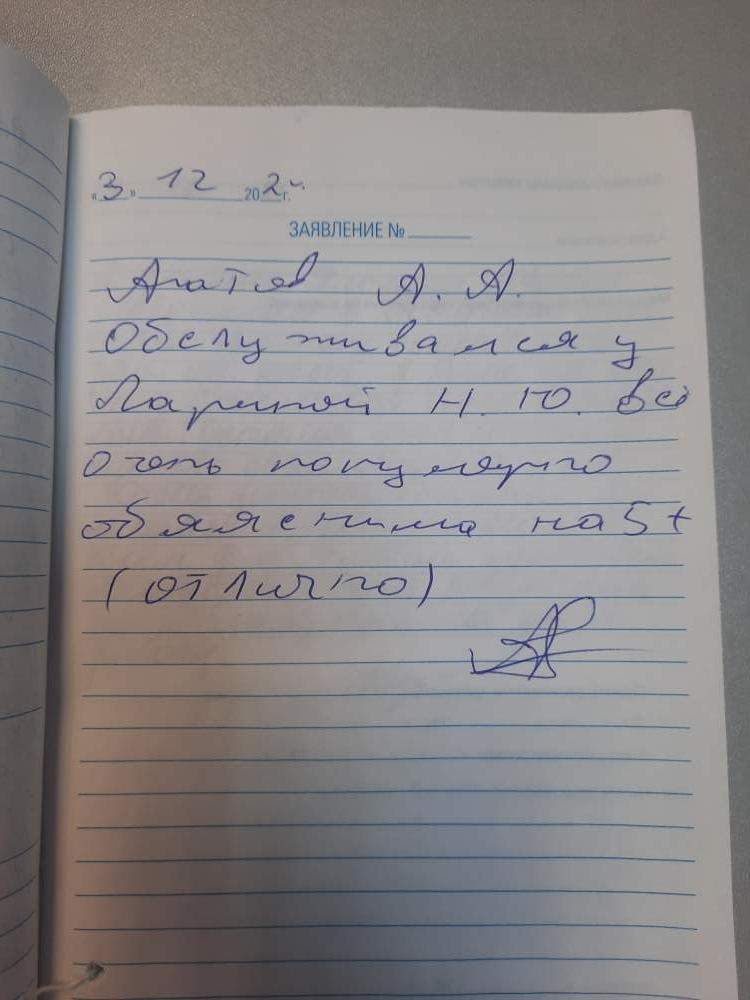 «3» 12 202 г.
ЗАЯВЛЕНИЕ №
А. А.
Обслуживался у
Лариной Н. Ю. всё
очень популярно
обяяснила на 5+
(отлично)